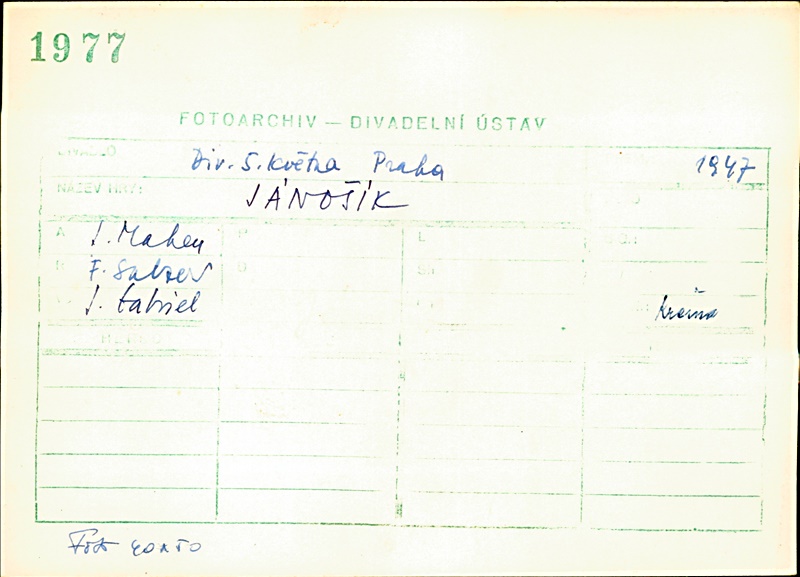 1977
FOTOARCHIV — DIVADELNÍ ÚSTAV
DIVADLO Div. 5. května Praha 1947
NÁZEV HRY: JÁNOŠÍK
A J. Mahen P L
R F. Salzer
J. Gabriel
Foto